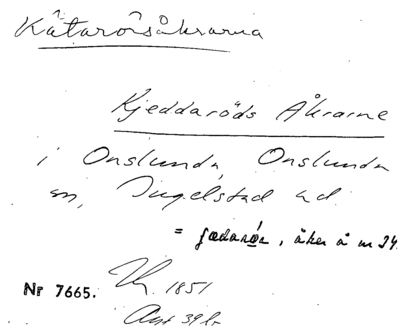 Kätarörsåkrarna
Kjeddaröds Åkrarne
i Onslunda, Onslunda
sn, Ingelstad hd
= , åker å nr 34.
Nr 7665.
1851
Ant 39